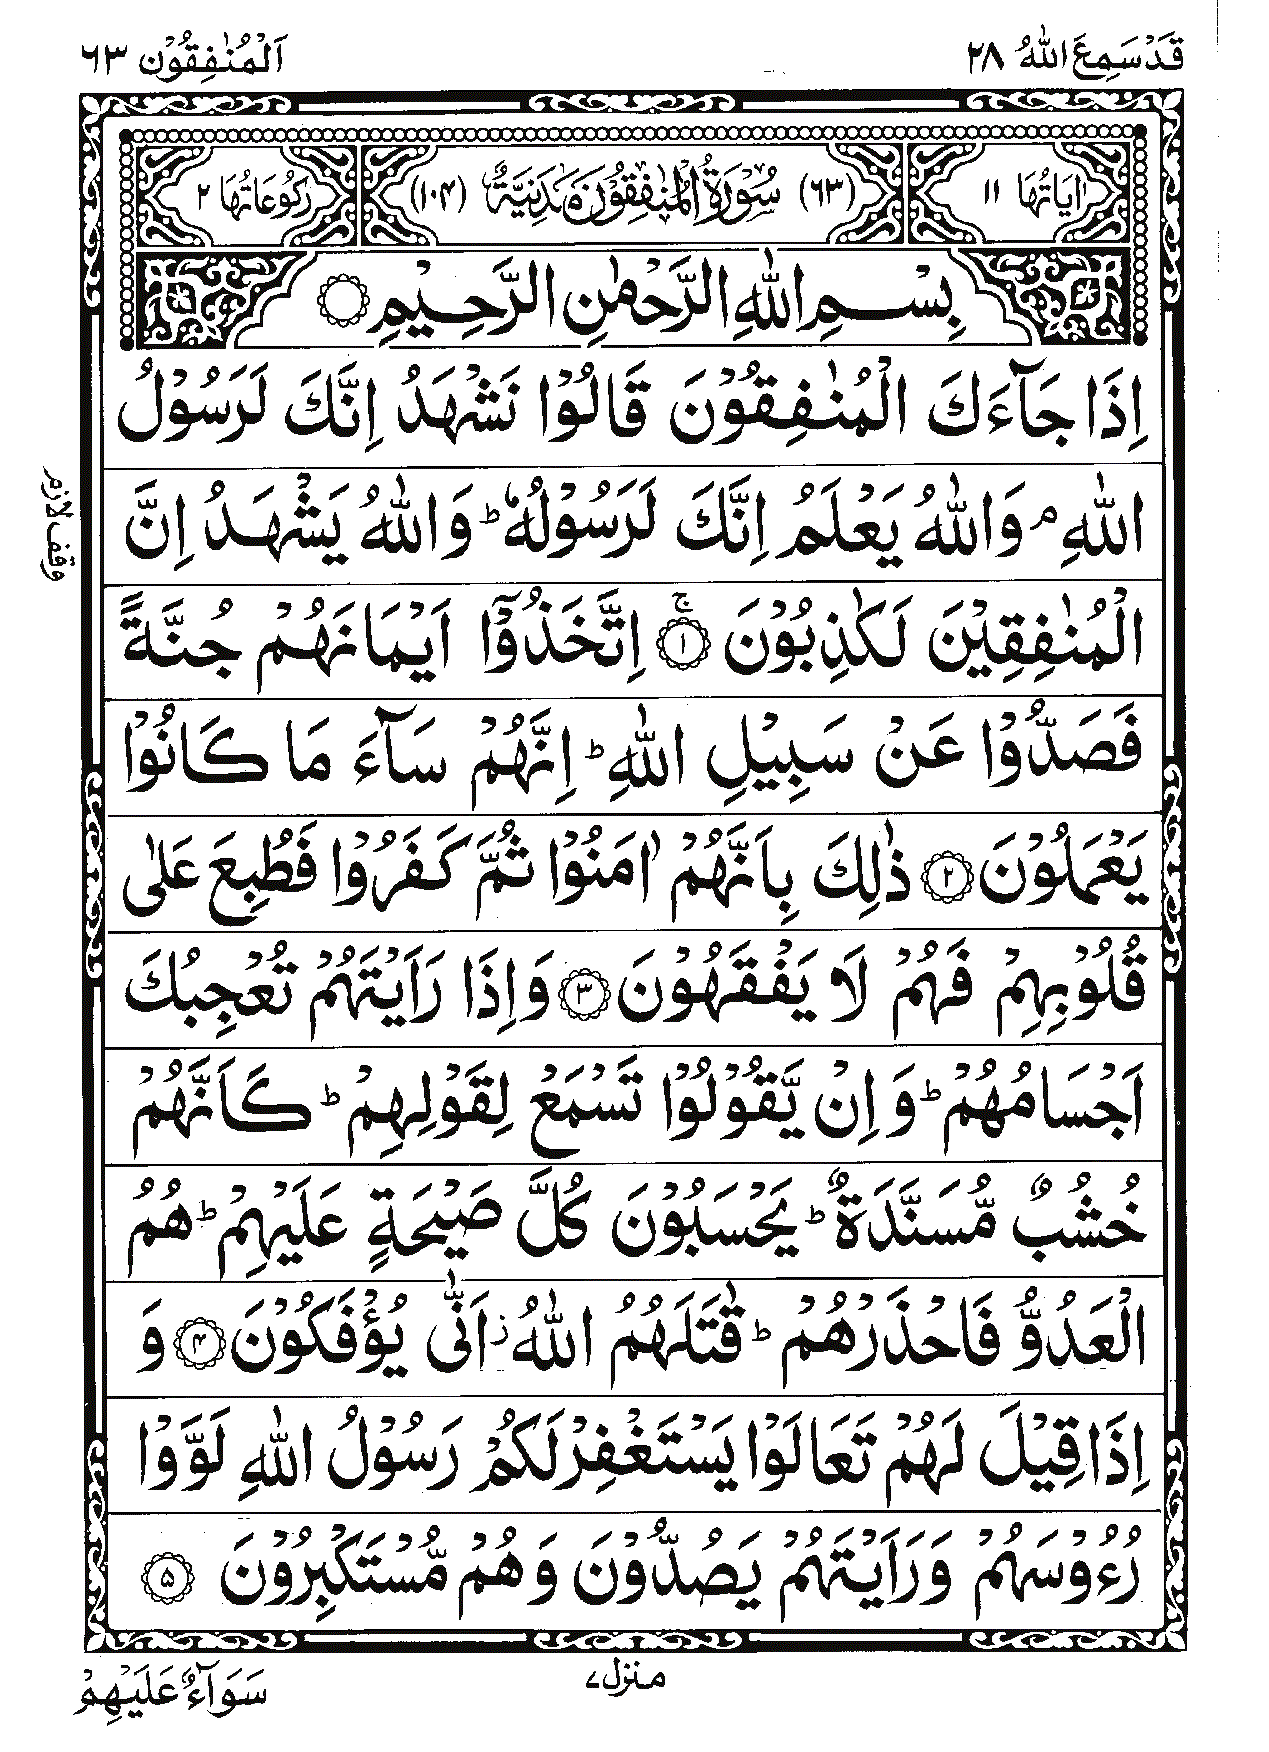 قَدْ سَمِعَ اللّٰهُ ۲۸
اَلْمُنٰفِقُوْن ۶۳
اٰیَاتُهَا ۱۱
(۶۳) سُوْرَةُ الْمُنٰفِقُوْنَ مَدَنِیَّةٌ (۱۰۴)
رُكُوْعَاتُهَا ۲
بِسْمِ اللّٰهِ الرَّحْمٰنِ الرَّحِیْمِ
اِذَا جَآءَكَ الْمُنٰفِقُوْنَ قَالُوْا نَشْهَدُ اِنَّكَ لَرَسُوْلُ
اللّٰهِ ۘ وَاللّٰهُ یَعْلَمُ اِنَّكَ لَرَسُوْلُهٗ ؕ وَاللّٰهُ یَشْهَدُ اِنَّ
وقف لازم
الْمُنٰفِقِیْنَ لَكٰذِبُوْنَ ۚ ۱ اِتَّخَذُوْۤا اَیْمَانَهُمْ جُنَّةً
فَصَدُّوْا عَنْ سَبِیْلِ اللّٰهِ ؕ اِنَّهُمْ سَآءَ مَا كَانُوْا
یَعْمَلُوْنَ ۲ ذٰلِكَ بِاَنَّهُمْ اٰمَنُوْا ثُمَّ كَفَرُوْا فَطُبِعَ عَلٰی
قُلُوْبِهِمْ فَهُمْ لَا یَفْقَهُوْنَ ۳ وَاِذَا رَاَیْتَهُمْ تُعْجِبُكَ
اَجْسَامُهُمْ ؕ وَ اِنْ یَّقُوْلُوْا تَسْمَعْ لِقَوْلِهِمْ ؕ كَاَنَّهُمْ
خُشُبٌ مُّسَنَّدَةٌ ؕ یَحْسَبُوْنَ كُلَّ صَیْحَةٍ عَلَیْهِمْ ؕ هُمُ
الْعَدُوُّ فَاحْذَرْهُمْ ؕ قٰتَلَهُمُ اللّٰهُ ؗ اَنّٰی یُؤْفَكُوْنَ ۴ وَ
اِذَا قِیْلَ لَهُمْ تَعَالَوْا یَسْتَغْفِرْ لَكُمْ رَسُوْلُ اللّٰهِ لَوَّوْا
رُءُوْسَهُمْ وَرَاَیْتَهُمْ یَصُدُّوْنَ وَهُمْ مُّسْتَكْبِرُوْنَ ۵
منزل ۷
سَوَآءٌ عَلَیْهِمْ